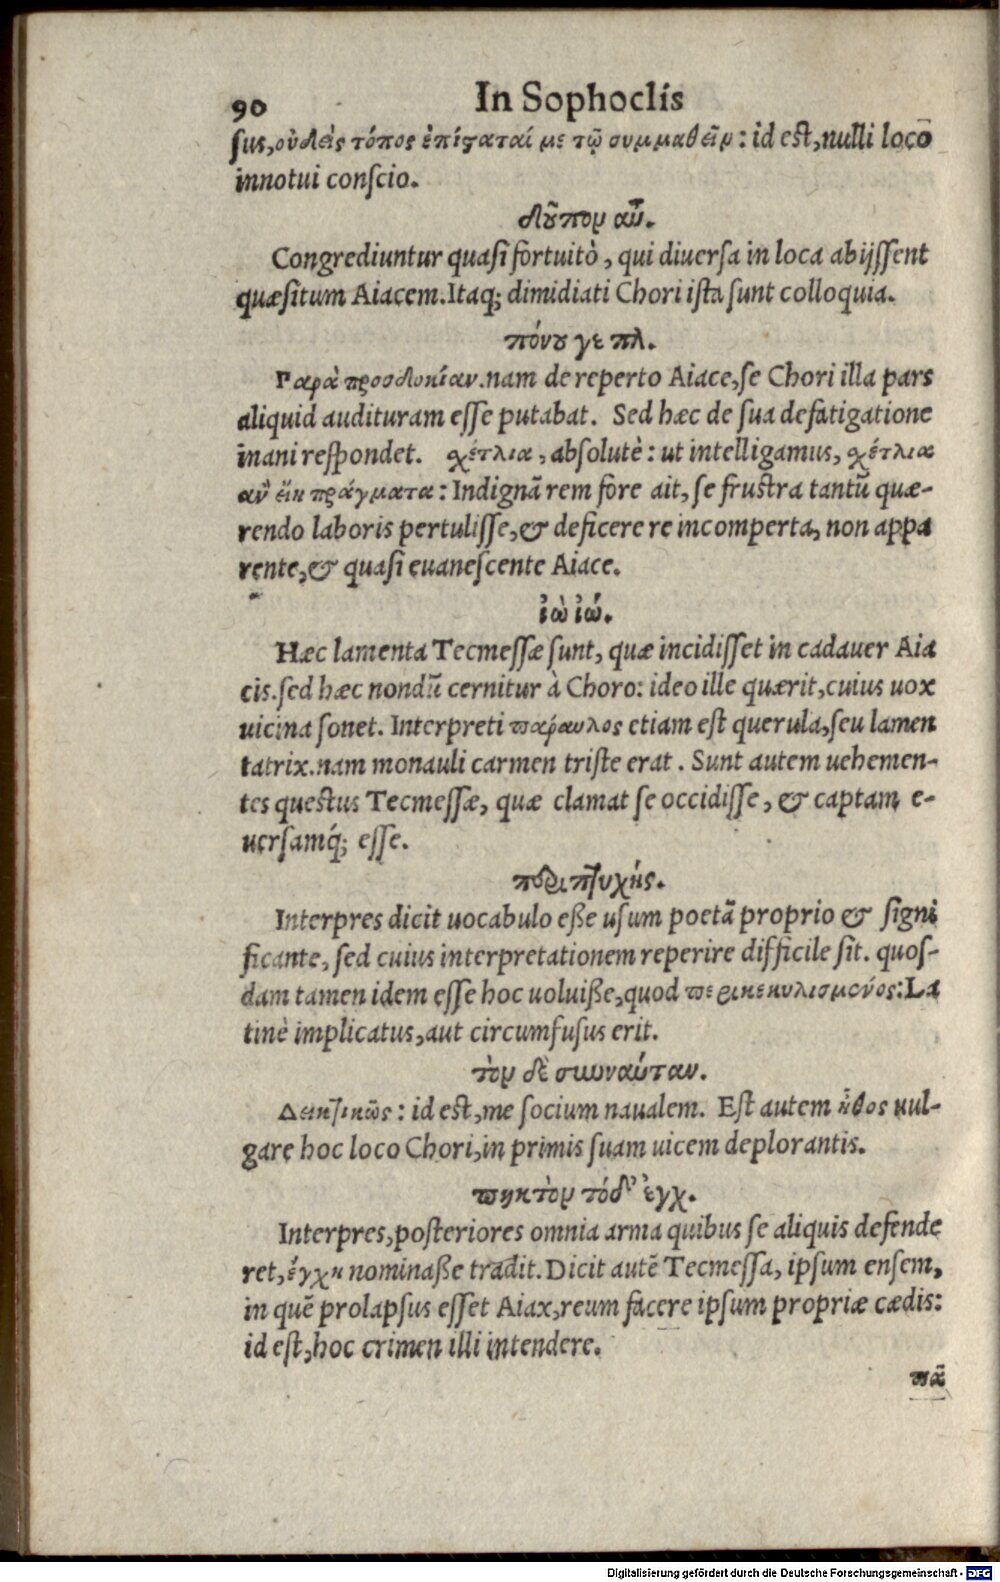 90 In Sophoclis
sus, οὐδεὶς τόπος ἐπίσταταί με τῷ συμμαθεῖν: id est, nulli locō
innotui conscio.
δοῦπον αὖ.
Congrediuntur quasi fortuitò, qui diuersa in loca abijssent
quæsitum Aiacem. Itaq; dimidiati Chori ista sunt colloquia.
πόνου γε πλ.
Παρὰ προσδοκίαν. nam de reperto Aiace, se Chori illa pars
aliquid audituram esse putabat. Sed hæc de sua defatigatione
inani respondet. σχέτλια, absolutè: ut intelligamus, σχέτλια
ἂν εἴη πράγματα: Indignā rem fore ait, se frustra tantū quæ-
rendo laboris pertulisse, & deficere re incomperta, non appa
rente, & quasi euanescente Aiace.
ἰὼ ἰώ.
Hæc lamenta Tecmessæ sunt, quæ incidisset in cadauer Aia
cis. sed hæc nondū cernitur à Choro: ideo ille quærit, cuius uox
uicina sonet. Interpreti πάραυλος etiam est querula, seu lamen
tatrix. nam monauli carmen triste erat. Sunt autem uehemen-
tes questus Tecmessæ, quæ clamat se occidisse, & captam e-
uersamq́; esse.
περιπτυχής.
Interpres dicit uocabulo eße usum poetā proprio & signi
ficante, sed cuius interpretationem reperire difficile sit. quos-
dam tamen idem esse hoc uoluiße, quod περικεκυλισμένος: La
tinè implicatus, aut circumfusus erit.
τὸν δὲ συνναύταν.
Δεικτικῶς: id est, me socium naualem. Est autem ἦθος uul-
gare hoc loco Chori, in primis suam uicem deplorantis.
πηκτὸν τόδ' ἔγχ.
Interpres, posteriores omnia arma quibus se aliquis defende
ret, ἔγχη nominaße tradit. Dicit autē Tecmessa, ipsum ensem,
in quē prolapsus esset Aiax, reum facere ipsum propriæ cædis:
id est, hoc crimen illi intendere.
πᾶ
Digitalisierung gefördert durch die Deutsche Forschungsgemeinschaft - DFG